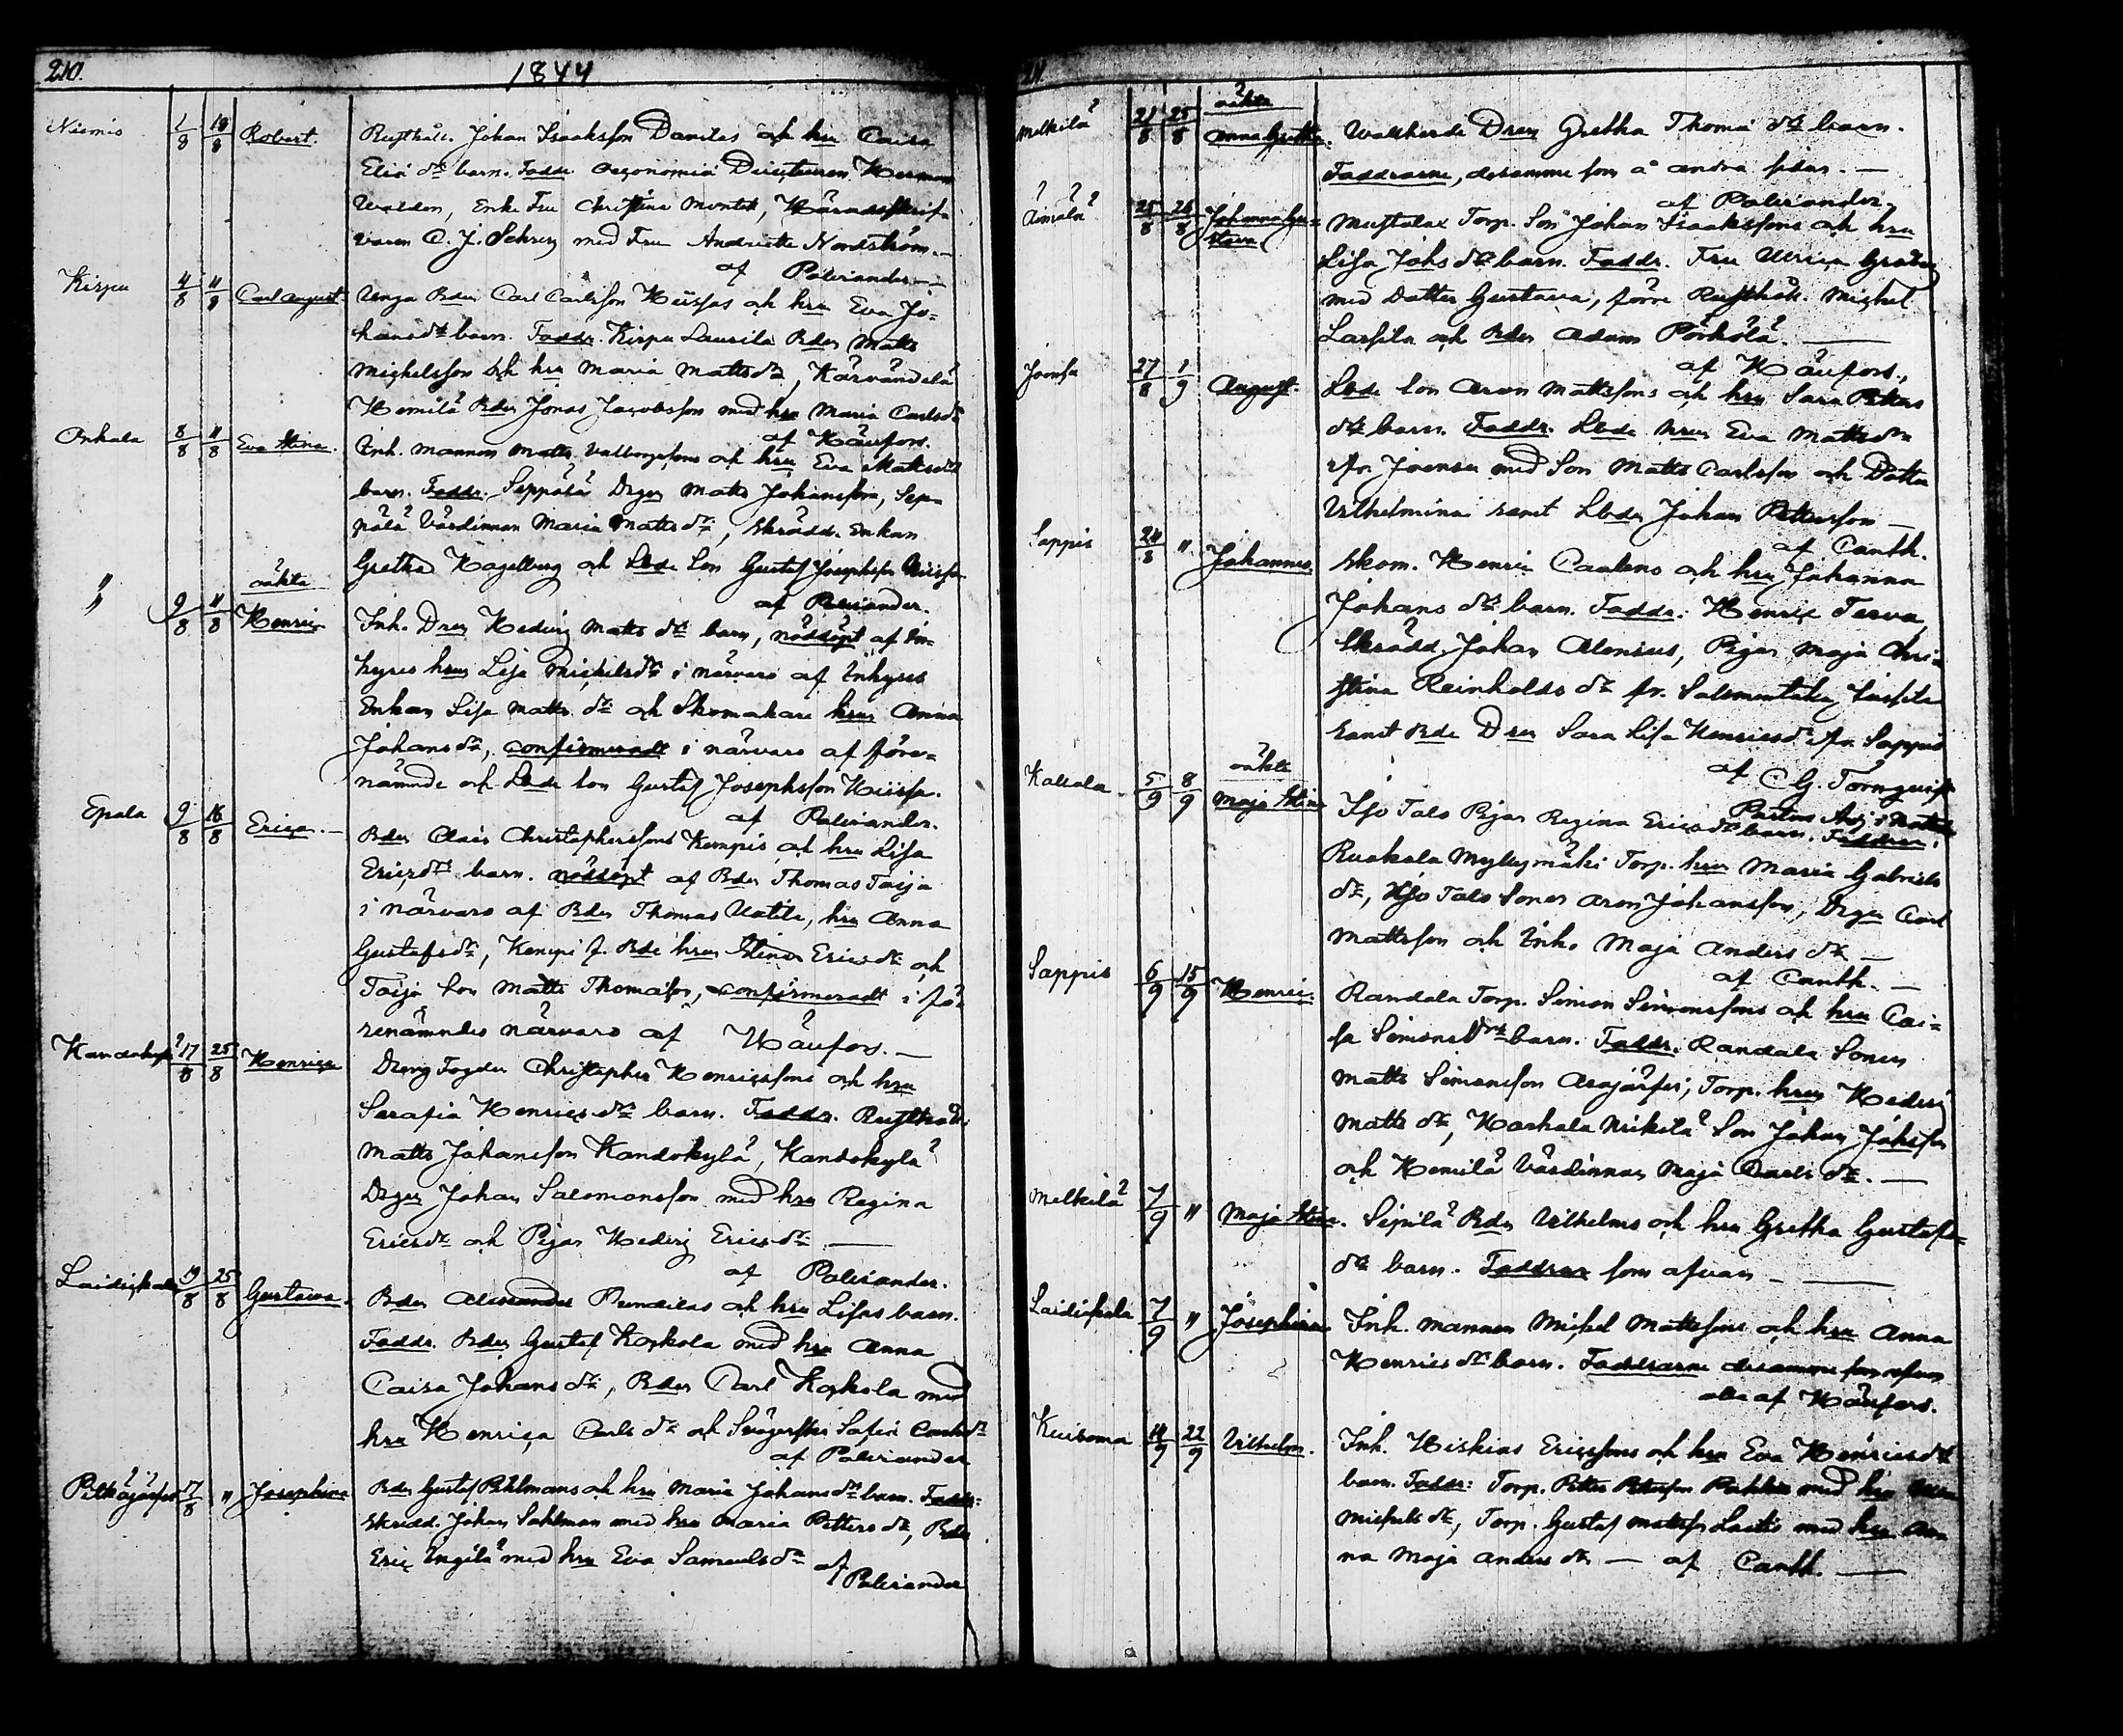 210.
1844
Niemis 1/8 18/8 Robert. Rusthåll. Johan Isaaksson Danilas och hru Caisa
Eliæ dr barn. Faddr. Oeconomiæ Directeuren Herman
Walden, Enke Fru Christina Munck, Häradsskrif-
varen C. J. med Fru Andriette Nordström.—
af Palviander—
Kirpu 4/8 11/8 Carl August. Unga Bdn Carl Carlsson Hiissas och hru Eva Jo-
hansdr barn. Faddr. Kirpu Laurila Bdn Matts
Michelsson och hru Maria Mattsdr, Kärvändelä
Hemilä Bdn Jonas Jacobsson med hru Maria Carlsdr
af Häufors.
Onkala 8/8 11/8 Eva Stina. Inh. mannen Matts Valborgssons och hru Eva Mattsdr
barn. Faddr. Seppälä Drgen Matts Johansson, Sep-
pälä Värdinnan Maria Mattsdr, Skrädd. Enkan
Gretha Hagelberg och Lbde Son Gustaf Josephsson Hiissa
af Palviander.
" oäkta
9/8 11/8 Henric Inh. Dren Hedvig Matts dr barn, nöddöpt af In-
hyses hrun Lisa Michelsdr i närvaro af Inhyses
Enkan Lisa Matts dr och Skomakare hrun Anna
Johansdr, confirmeradt i närvaro af före-
nämnde och Lbde Son Gustaf Josephsson Hiissa.
af Palviander.
Epala 9/8 18/8 Erica.— Bdn Claës Christopherssons Kempis och hru Lisa
Ericsdr barn. nöddöpt af Bdn Thomas Taija
i närvaro af Bdn Thomas Uotila, hru Anna
Gustafsdr, Kempi f. Bde hrun Stina Ericsdr och
Taija Son Matts Thomasson, confirmeradt i fö-
renämndes närvaro af Häufors.—
Kandokylä 17/8 25/8 Henrica Dreng Fogden Christopher Henricssons och hru
Serafia Henricsdr barn. Faddr. Rusthåll.
Matts Johansson Kandokylä, Kandokylä
Drgen Johan Salomonsson med hru Regina
Ericsdr och Pigan Hedvig Ericsdr —
af Palviander.
Laidickala 19/8 25/8 Gustava. Bdn Alexander Pundilas och hru Lisas barn.
Faddr. Bdn Gustaf Kockola med hru Anna
Caisa Johans dr, Bdn Carl Kockola med
hru Henrica Carls dr och Svägerskan Sofia Carlsdr
af Palviander
Pitkäjärfvi 17/8 " Josephina Bdn Gustaf Pihlmans och hru Maria Johansdr barn. Faddr:
Skrädd. Johan Sahlman med hru Maria Petters dr, Bdn
Eric Ingilä med hru Eva Samuelsdr af
Palviander
211
Melkilä 21/8 25/8 oäkta
Anna Gretha. Vallherde Dren Gretha Thomæ dr barn.
Faddrarne, desamme som å andra sidan.—
af Palviander.
25/8 26/8 Johanna Gus-
tava Mustalax Torp. Son Johan Isaakssons och hru
Lisa Johs dr barn. Faddr. Fru Ulrica
med Dotter Gustava, förre Rusthåll. Michel
Lassila och Bdn Adam Pörhölä.—
af Häufors.
Joensu 27/8 1/9 August. Lbde Son Aron Mattssons och hru Sara Petters
dr barn. Faddr. Lbde hrun Eva Mattsdr
ifr. Joensu med Son Matts Carlsson och Dotter
Vilhelmina samt Lbden Johan Pettersson—
af Canth.
Sappis 24/8 " Johannes. Skom. Henric Caulens och hru Johanna
Johans dr barn. Faddr. Henric Terva,
Skrädd. Johan Alenius, Pigan Maja Chri-
stina Reinholds dr fr. Salomontala Jussila
samt Bde Dren Sara Lisa Henricsdr ifr. Sappis
af C G. Törnqvist
Pastors Adj.
Kallala 5/9 8/9 oäkta
Maja Stina Iso Talo Pigan Regina Ericsdr barn. Faddrar:
Ruokola Myllymäki Torp. hru Maria Gabriels
dr, Iso Talo Sonen Aron Johansson, Drgen Carl
Mattsson och Inh. Maja Anders dr—
af Canth.—
Sappis 6/9 15/9 Henric. Randala Torp. Simon Simonssons och hru Cai-
sa Simonsdr barn. Faddr. Randala Sonen
Matts Simonsson Torp. hrun Hedvig
Matts dr, Harhala Mikilä Son Johan Johsson
och Hemilä Värdinnan Maja Carls dr.—
Melkilä 7/9 " Maja Stina. Sipilä Bdn Vilhelms och hru Gretha Gustafs-
dr barn. Faddrar som ofvan—
Laidickala 7/9 " Josephina Inh. mannen Michel Mattssons och hru Anna
Henrics dr barn. Faddrarne desamme som ofvan
alla af Häufors.
Kuisoma 14/9 22/9 Vilhelm. Inh. Hiskias Ericssons och hru Eva Henricsdr
barn. Faddr: Torp. Petter Pettersson med hru
Michels dr, Torp. Gustaf Mattsson Laitis med hru An-
na Maja Anders dr.— af Canth.—